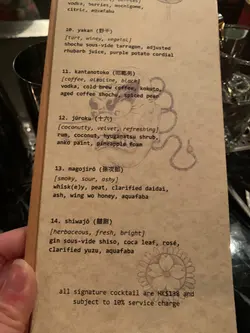 vodka, berries,
citric, aquafaba
10. yakan (野干)
[tart, winey, vegetal]
shochu sous-vide tarragon, adjusted
rhubarb juice, purple potato cordial
11. kantanotoko (邯鄲男)
vodka, cold brew coffee, kokuto,
aged coffee shochu, spiced pear
12. jūroku (十六)
[coconutty, velvet, refreshing]
rum, coconut, hyuganatsu shrub,
anko paint, pineapple foam
13. magojirō (孫次郎)
[smoky, sour, ashy]
whisk(e)y, peat, clarified daidai,
ash, wing wo honey, aquafaba
14. shiwajō (皺尉)
[herbaceous, fresh, bright]
gin sous-vide shiso, coca leaf, rosé,
clarified yuzu, aquafaba
all signature cocktail are HK$138 and
subject to 10% service charge